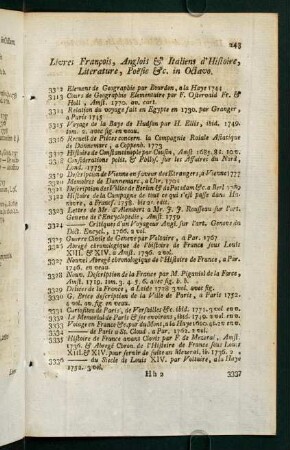 243
Livres François, Anglois & Italiens d'Histoire,
Literature, Poësie &c. in Octavo.
3312 Element de Geographie par Bourdon, a la Haye 1741
3313 Cours de Geographie Elementaire par F. Osterwald Fr. &
Holl, Amst. 1770. av. cart.
3314 Relation du voyage fait en Egypte en 1730. par Granger,
a Paris 1745
3315 Voyage de la Baye de Hudson par H. Ellis, ibid. 1749.
tom. 2. avec fig. en veau.
3316 Recueil de Pièces concern. la Compagnie Roiale Asiatique
de Dannemarc, a Coppenh. 1773
3317 Histoire de Constantinople par Cousin, Amst. 1685. 82. tom.
3318 Considerations polit. & Philos. sur les Affaires du Nord,
Lond. 1773
3319 Description de Vienne en faveur des Etrangers, a Vienne 1777
3320 Memoires de Dannemarc, a Utr. 1701
3321 Description des Villes de Berlin & de Potsdam &c. a Berl. 1769
3322 Histoire de la Campagne de tout ce qui s'est passé dans
3323 Lettre de Mr. d'Alembert a Mr. J. J. Rousseau sur l'art.
Geneve de l'Encyclopédie, Amst. 1759
3324 Critiques d'un Voyageur Angl. sur l'art. Geneve du
Dict. Encycl. 1766. 2 vol.
3325 Ouvres Choisies de Geneve par Voltaire, a Par. 1767
3326 Abregé chronologique de l'Histoire de France sous Louis
XIII. & XIV. a Amst. 1736. 2 vol.
3327 Nouvel Abregé chronologique de l'Histoire de France, a Par.
1746. en veau.
3328 Nouv. Description de la France par M. Piganiol de la Force,
Amst. 1719. tom. 3. 4. 5. 6. avec fig. h. b.
3329 Delices de la France, a Leide 1728 3 vol. avec fig.
3330 G. Brice description de la Ville de Paris, a Paris 1752.
4 vol. av. fig. en veau.
3331 Curiosités de Paris, de Versailles &c. ibid. 1771. 2 vol. av. fig.
3332 Le Memorial de Paris & ses environs, ibid. 1749. 2 vol. rom.
3333 Voyage en France &c. par du Mont, a la Haye
3334 de Paris a St. Cloud. a Par. 1762. 2 vol.
3335 Histoire de France avant Clovis par F. de Mezerai, Amst.
1736. & Abregé Chron. de l'Histoire de France sous Louis
XIII. & XIV. pour servir de suite au Mezerai, ib. 1736. 2.
3336 du Siecle de Louis XIV. par Voltaire, a la Haye
1752. 3 vol.
Hh 2
3337